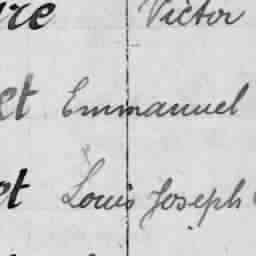 re Victor
et Emmanuel
et Louis Joseph